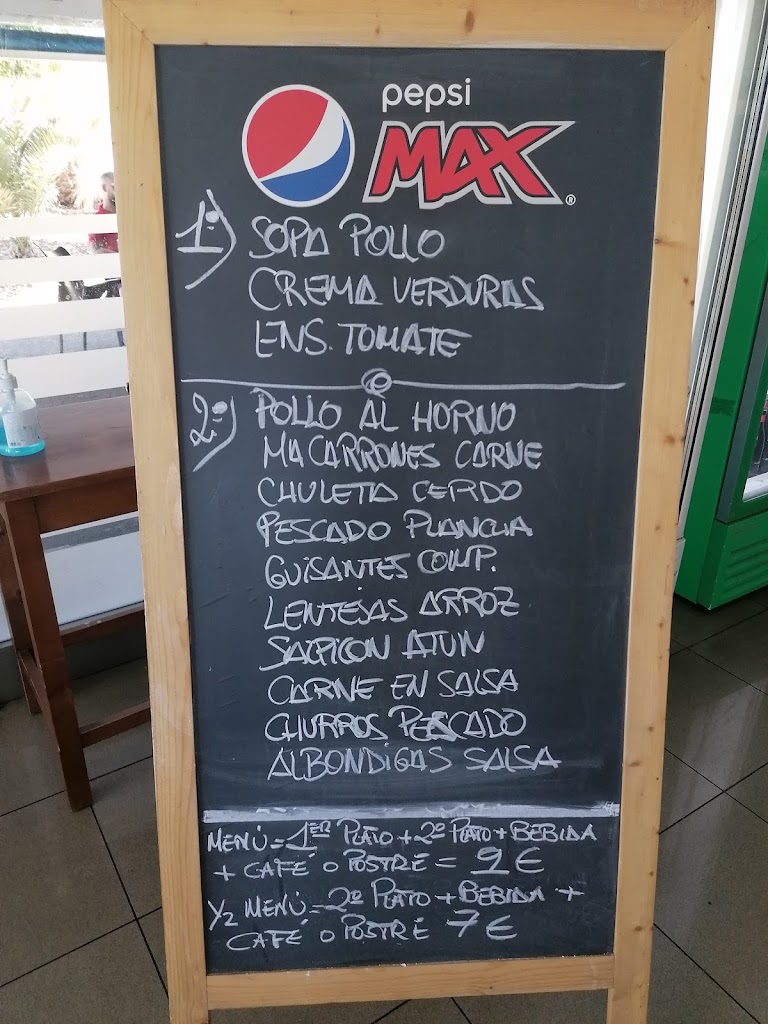 pepsi
MAX®
1º) SOPA POLLO
CREMA VERDURAS
ENS. TOMATE
2º) POLLO AL HORNO
MACARRONES CARNE
CHULETA CERDO
PESCADO PLANCHA
GUISANTES COMP.
LENTEJAS ARROZ
SALPICON ATUN
CARNE EN SALSA
CHURROS PESCADO
ALBONDIGAS SALSA
MENÚ=1ER PLATO+2º PLATO+BEBIDA
+ CAFÉ O POSTRE = 9€
1/2 MENÚ=2º PLATO+BEBIDA +
CAFÉ O POSTRE 7€